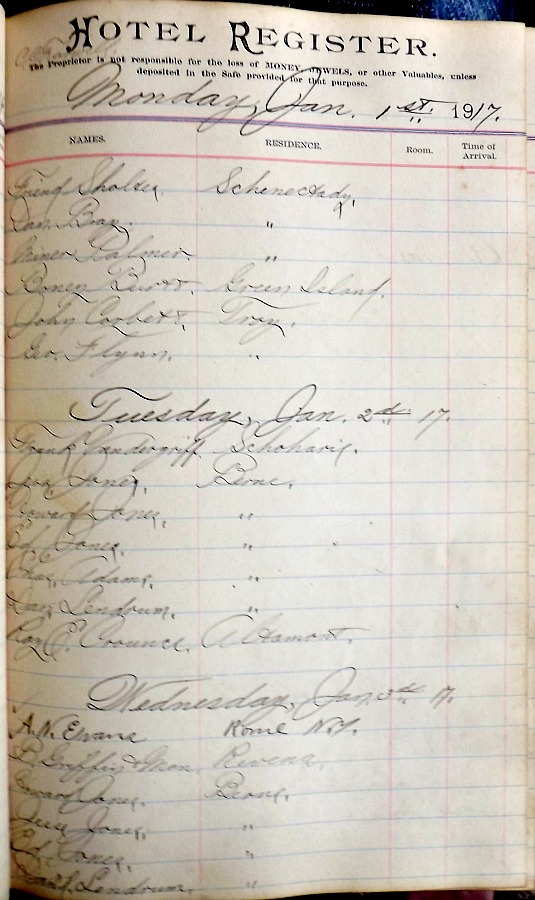 HOTEL REGISTER.
The Proprietor is not responsible for the loss of MONEY, JEWELS, or other Valuables, unless
deposited in the Safe provided for that purpose.
Monday, Jan. 1st. 1917.
NAMES. RESIDENCE. Room. Time of Arrival.
Sholtes, Schenectady,
Dan. Bray. "
Miner Palmer. "
Burtt. Green Island.
John Corbett. Troy.
Geo. Flynn. "
Tuesday, Jan. 2nd. 17.
Frank Vandergriff. Schoharie.
Jones, Berne.
Howard Jones, "
Ed. Jones, "
Chas. Adams, "
Dan. Lendrum. "
Roy E. Crounce. Altamont.
Wednesday, Jan. 3rd. 17.
A. N. Evans Rome N.Y.
Griffin & Man. Ravena.
Howard Jones. Berne.
Jesse Jones. "
Ed. Jones. "
Lendrum. "